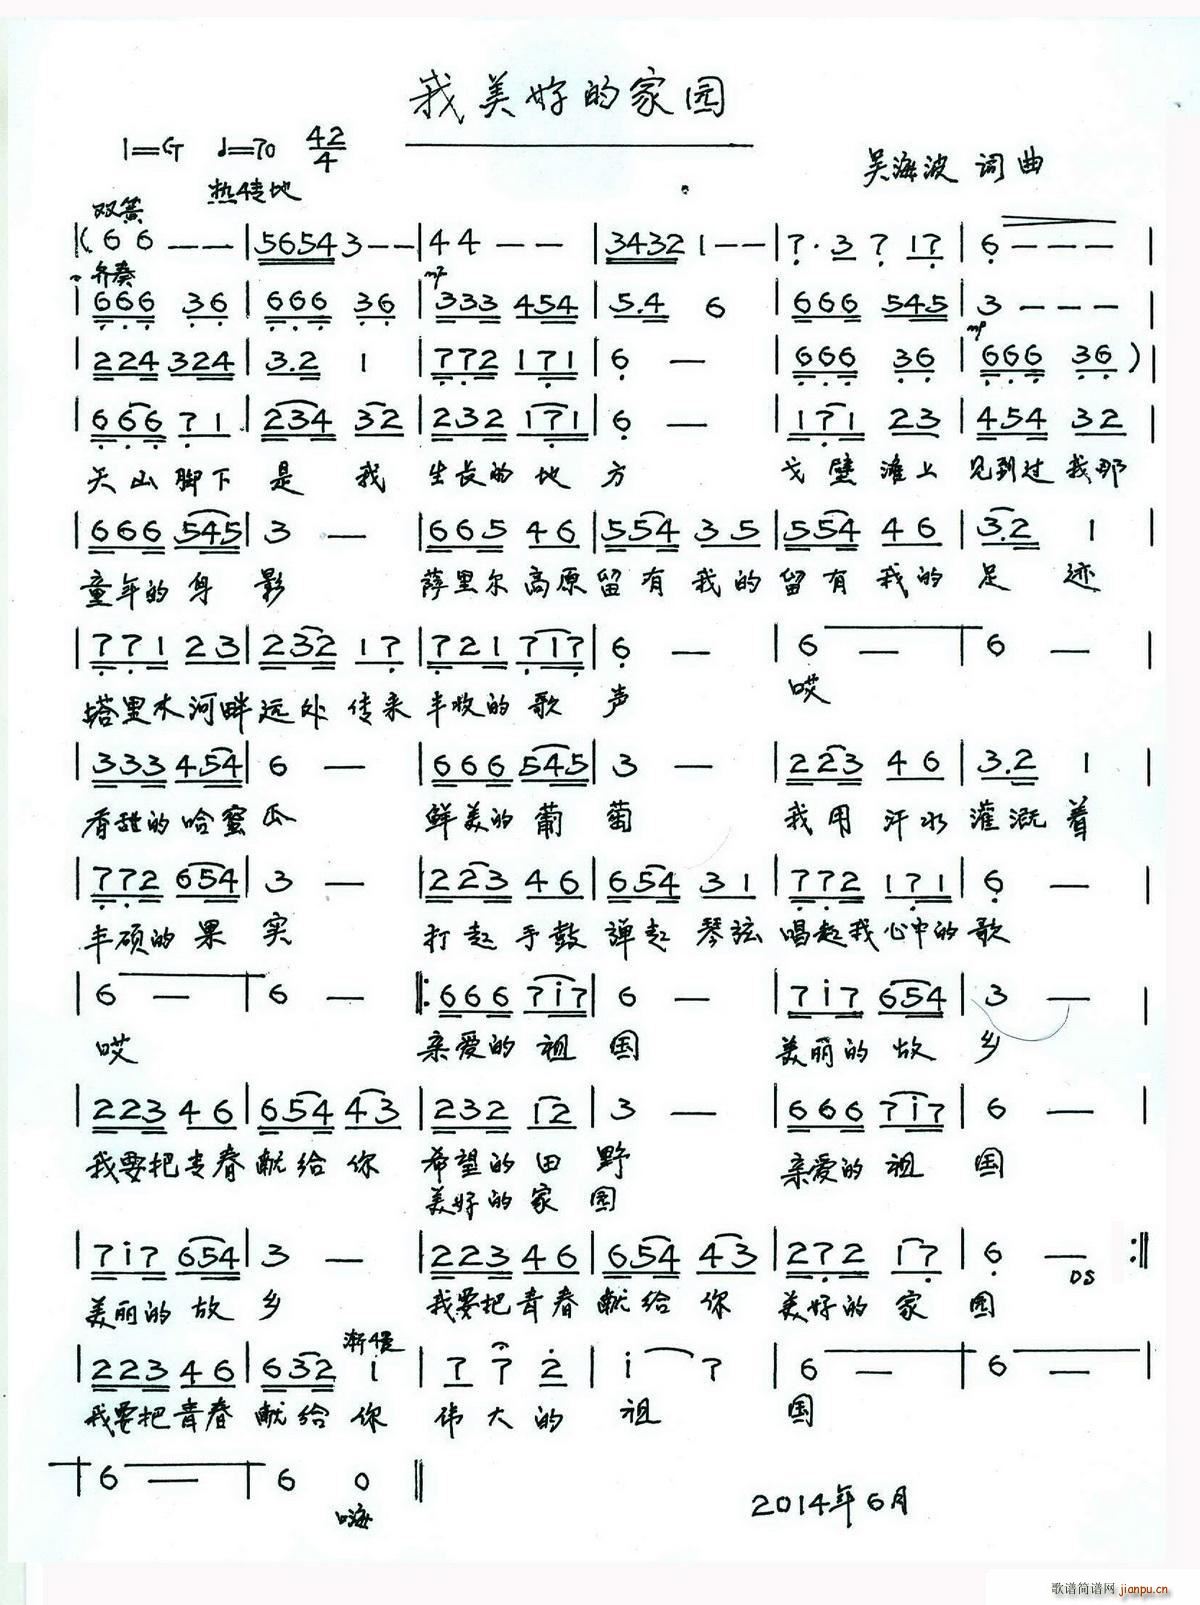 我美好的家园
1=G ♩=70 42/4
热情地
吴海波 词曲
双簧
|( 6 6 — — | 5654 3 — — | 4 4 — — | 3432 1 — — | 7 · 3 7 17 | 6 — — — |
齐奏
mf
| 666 36 | 666 36 | 333 454 | 5.4 6 | 666 545 | 3 — — — |
mp
| 224 324 | 3.2 1 | 772 171 | 6 — | 666 36 | 666 36 ) |
| 666 71 | 234 32 | 232 171 | 6 — | 171 23 | 454 32 |
天山脚下是我生长的地方 戈壁滩上见到过我那
| 666 545 | 3 — | 665 46 | 554 35 | 554 46 | 3.2 1 |
童年的身影 萨里尔高原留有我的留有我的足迹
| 771 23 | 232 17 | 721 717 | 6 — | 6 — | 6 — |
塔里木河畔远处传来丰收的歌声 哎
| 333 454 | 6 — | 666 545 | 3 — | 223 46 | 3.2 1 |
香甜的哈蜜瓜 鲜美的葡萄 我用汗水灌溉着
| 772 654 | 3 — | 223 46 | 654 31 | 772 171 | 6 — |
丰硕的果实 打起手鼓弹起琴弦唱起我心中的歌
| 6 — | 6 — |: 666 717 | 6 — | 717 654 | 3 — |
哎 亲爱的祖国 美丽的故乡
| 223 46 | 654 43 | 232 12 | 3 — | 666 717 | 6 — |
我要把青春献给你希望的田野 亲爱的祖国
美好的家园
| 717 654 | 3 — | 223 46 | 654 43 | 272 17 | 6 — :‖
DS
美丽的故乡 我要把青春献给你 美好的家园
渐慢
| 223 46 | 632 1 | 7 7 2 | 1 7 | 6 — | 6 — |
我要把青春献给你伟大的祖国
| 6 — | 6 0 ‖
嗨
2014年6月
歌谱简谱网 jianpu.cn